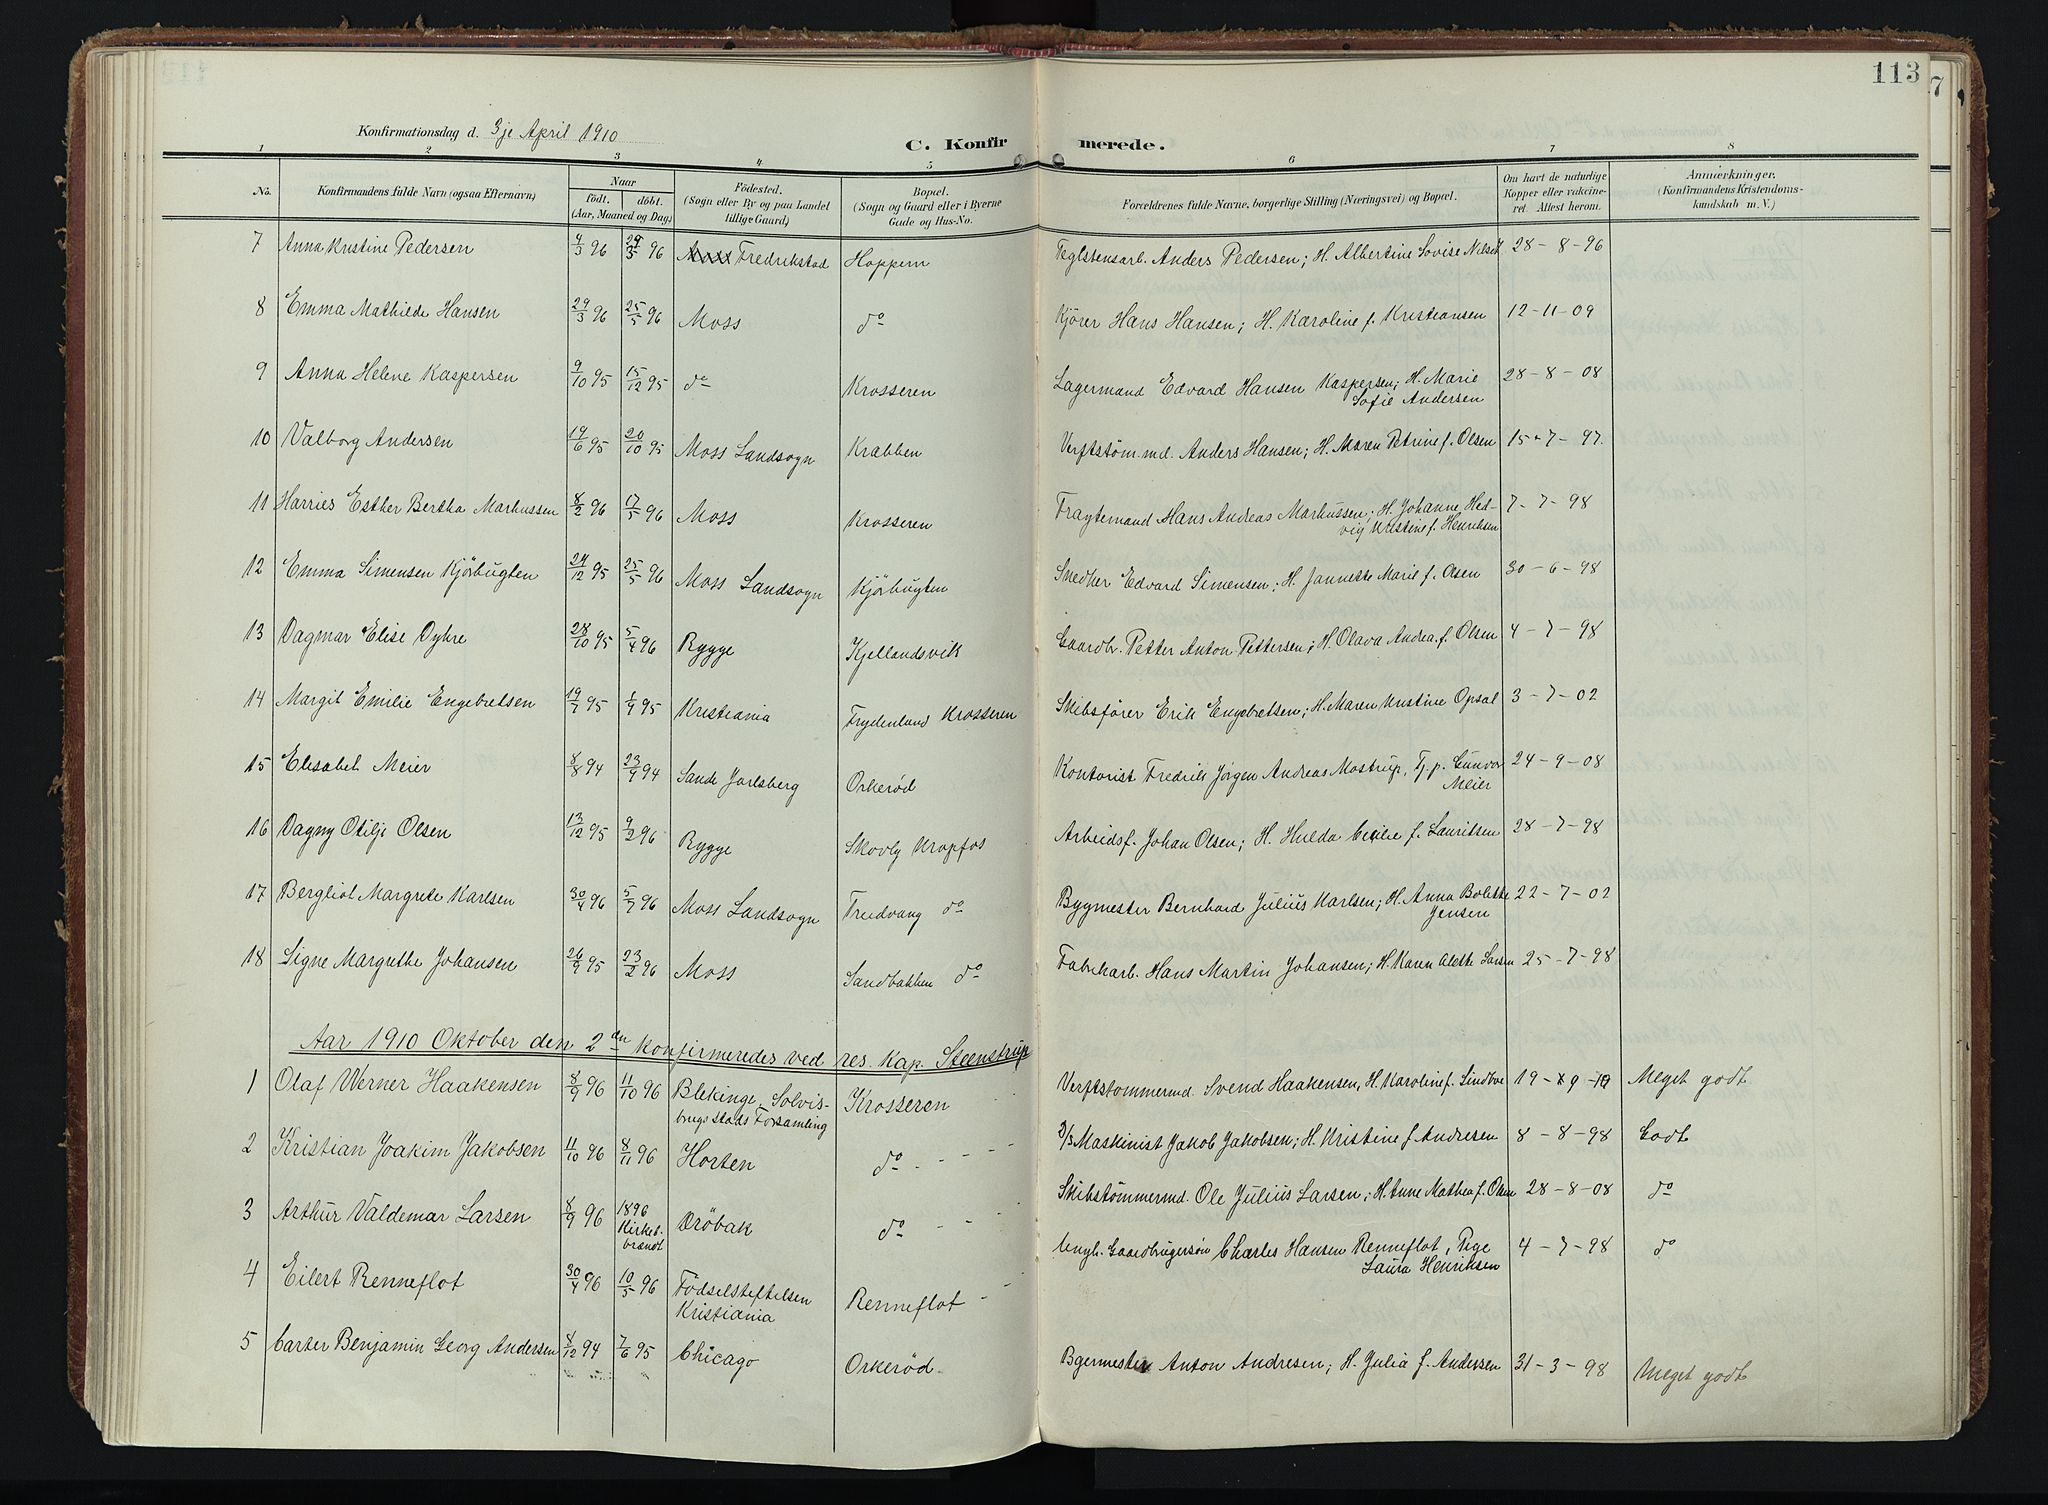 113
7
Konfirmationsdag d. 3je April 1910
C. Konfirmerede.
1 2 3 4 5 6 7 8
No. Konfirmandens fulde Navn (ogsaa Efternavn) Naar født. døbt. (Aar, Maaned og Dag) Fødested. (Sogn eller By og paa Landet tillige Gaard) Bopæl. (Sogn og Gaard eller i Byerne Gade og Hus-No. Forældrenes fulde Navne, borgerlige Stilling (Næringsvei) og Bopæl. Om havt de naturlige Kopper eller vakcineret. Attest herom. Anmærkninger. (Konfirmandens Kristendomskundskab m. V.)
7 Anna Kristine Pedersen 4/3 96 /3 96 Fredrikstad Hoppern Teglstensarb. Anders Pedersen; H. Albertine Lovise 28-8-96
8 Emma Mathilde Hansen 29/3 96 25/5 96 Moss do Kjører Hans Hansen; H. Karoline f. Kristiansen 12-11-09
9 Anna Helene Kaspersen 9/10 95 15/12 95 do Krosseren Lagermand Edvard Hansen Kaspersen; H. Marie 28-8-08
Sofie Andersen
10 Valborg Andersen 19/6 95 20/10 95 Moss Landsogn Krabben Verftstøm.md. Anders Hansen; H. Maren Petrine f. Olsen 15-7-97
11 Harries Esther Bertha Markussen 8/2 96 17/5 96 Moss Krosseren Fragtemand Hans Andreas Markussen; H. Johanne Hed- 7-7-98
vig Kristine f. Henriksen
12 Emma Simensen Kjørbugten 24/12 95 25/5 96 Moss Landsogn Kjørbugten Snedker Edvard Simensen; H. Jannette Marie f. Olsen 30-6-98
13 Dagmar Elise Dyhre 28/10 95 5/4 96 Rygge Kjellandsvik Gaardbr. Petter Anton Pettersen; H. Olava Andrea f. Olsen 4-7-98
14 Margit Emilie Engebretsen 19/7 95 95 Kristiania Frydenlund Krosseren Skibsfører Erik Engebretsen; H. Maren Kristine Opsal 3-7-02
15 Elisabet Meier 8/8 94 23/9 94 Sande Jarlsberg Orkerød Kontorist Fredrik Jørgen Andreas Mostrup, Tj.p. Gunvor 24-9-08
Meier
16 Dagny Otilje Olsen 13/12 95 9/2 96 Rygge Skovly Kropfos Arbeidsf. Johan Olsen; H. Hulda Cecilie f. Lauritsen 28-7-98
17 Bergliot Margrete Karlsen 30/4 96 5/7 96 Moss Landsogn Trudvang do Bygmester Bernhard Julius Karlsen; H. Anna Bolette 22-7-02
Jensen
18 Signe Margrethe Johansen 26/9 95 23/2 96 Moss Sandbakken do Fabrikarb. Hans Martin Johansen; H. Karen Alette Larsen 25-7-98
Aar 1910 Oktober den 2den konfirmeredes ved res. kap. Steenstrup
1 Olaf Werner Haakensen 8/9 96 11/10 96 Blekinge, Solvis- Krosseren Verftstømmermd. Svend Haakensen, H. Karoline f. Meget godt
brugs stads Forsamling
2 Kristian Joakim Jakobsen 11/10 96 8/11 96 Horten do - - - - Maskinist Jakob Jakobsen; H. Kristine f. Andresen 8-8-98 Godt
3 Arthur Valdemar Larsen 8/9 96 1896 Kirkebbrændt Drøbak do - - - Skibstømmermd. Ole Julius Larsen; H. Anne Mathea f. Olsen 28-8-08 do
4 Eilert Renneflot 30/4 96 10/5 96 Fødselstiftelsen Kristiania Renneflot Ungk. Gaardbrugersøn Charles Hansen Renneflot, Pige 4-7-98 do
Laura Henriksen
5 Carter Benjamin Georg Andersen 8/12 94 7/6 95 Chicago Orkerød Bgermester Anton Andresen; H. Julia f. Andersen 31-3-98 Meget godt